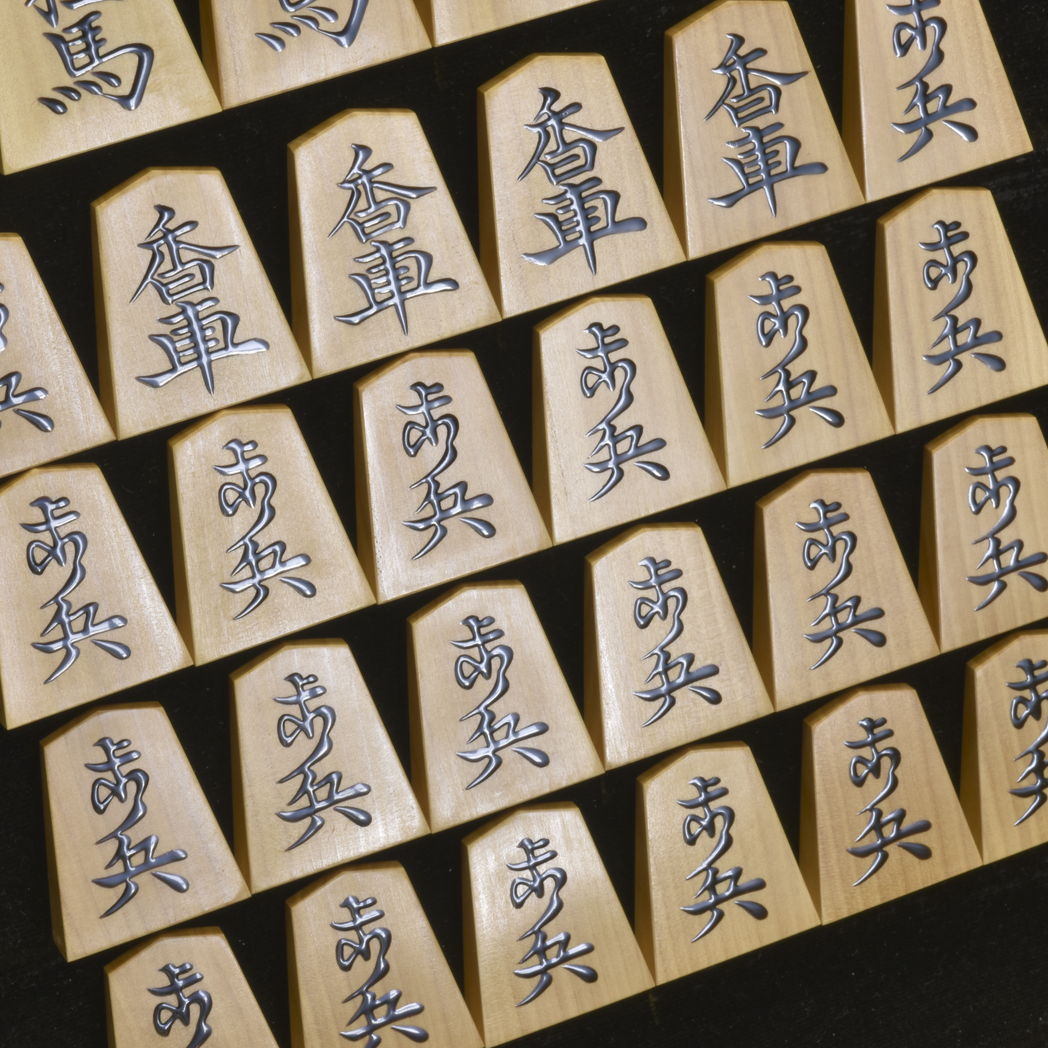 馬
馬
兵
香車
香車
香車
香車
歩兵
歩兵
歩兵
歩兵
歩兵
歩兵
歩兵
歩兵
歩兵
歩兵
歩兵
歩兵
歩兵
歩
歩兵
歩兵
歩兵
歩兵
歩兵